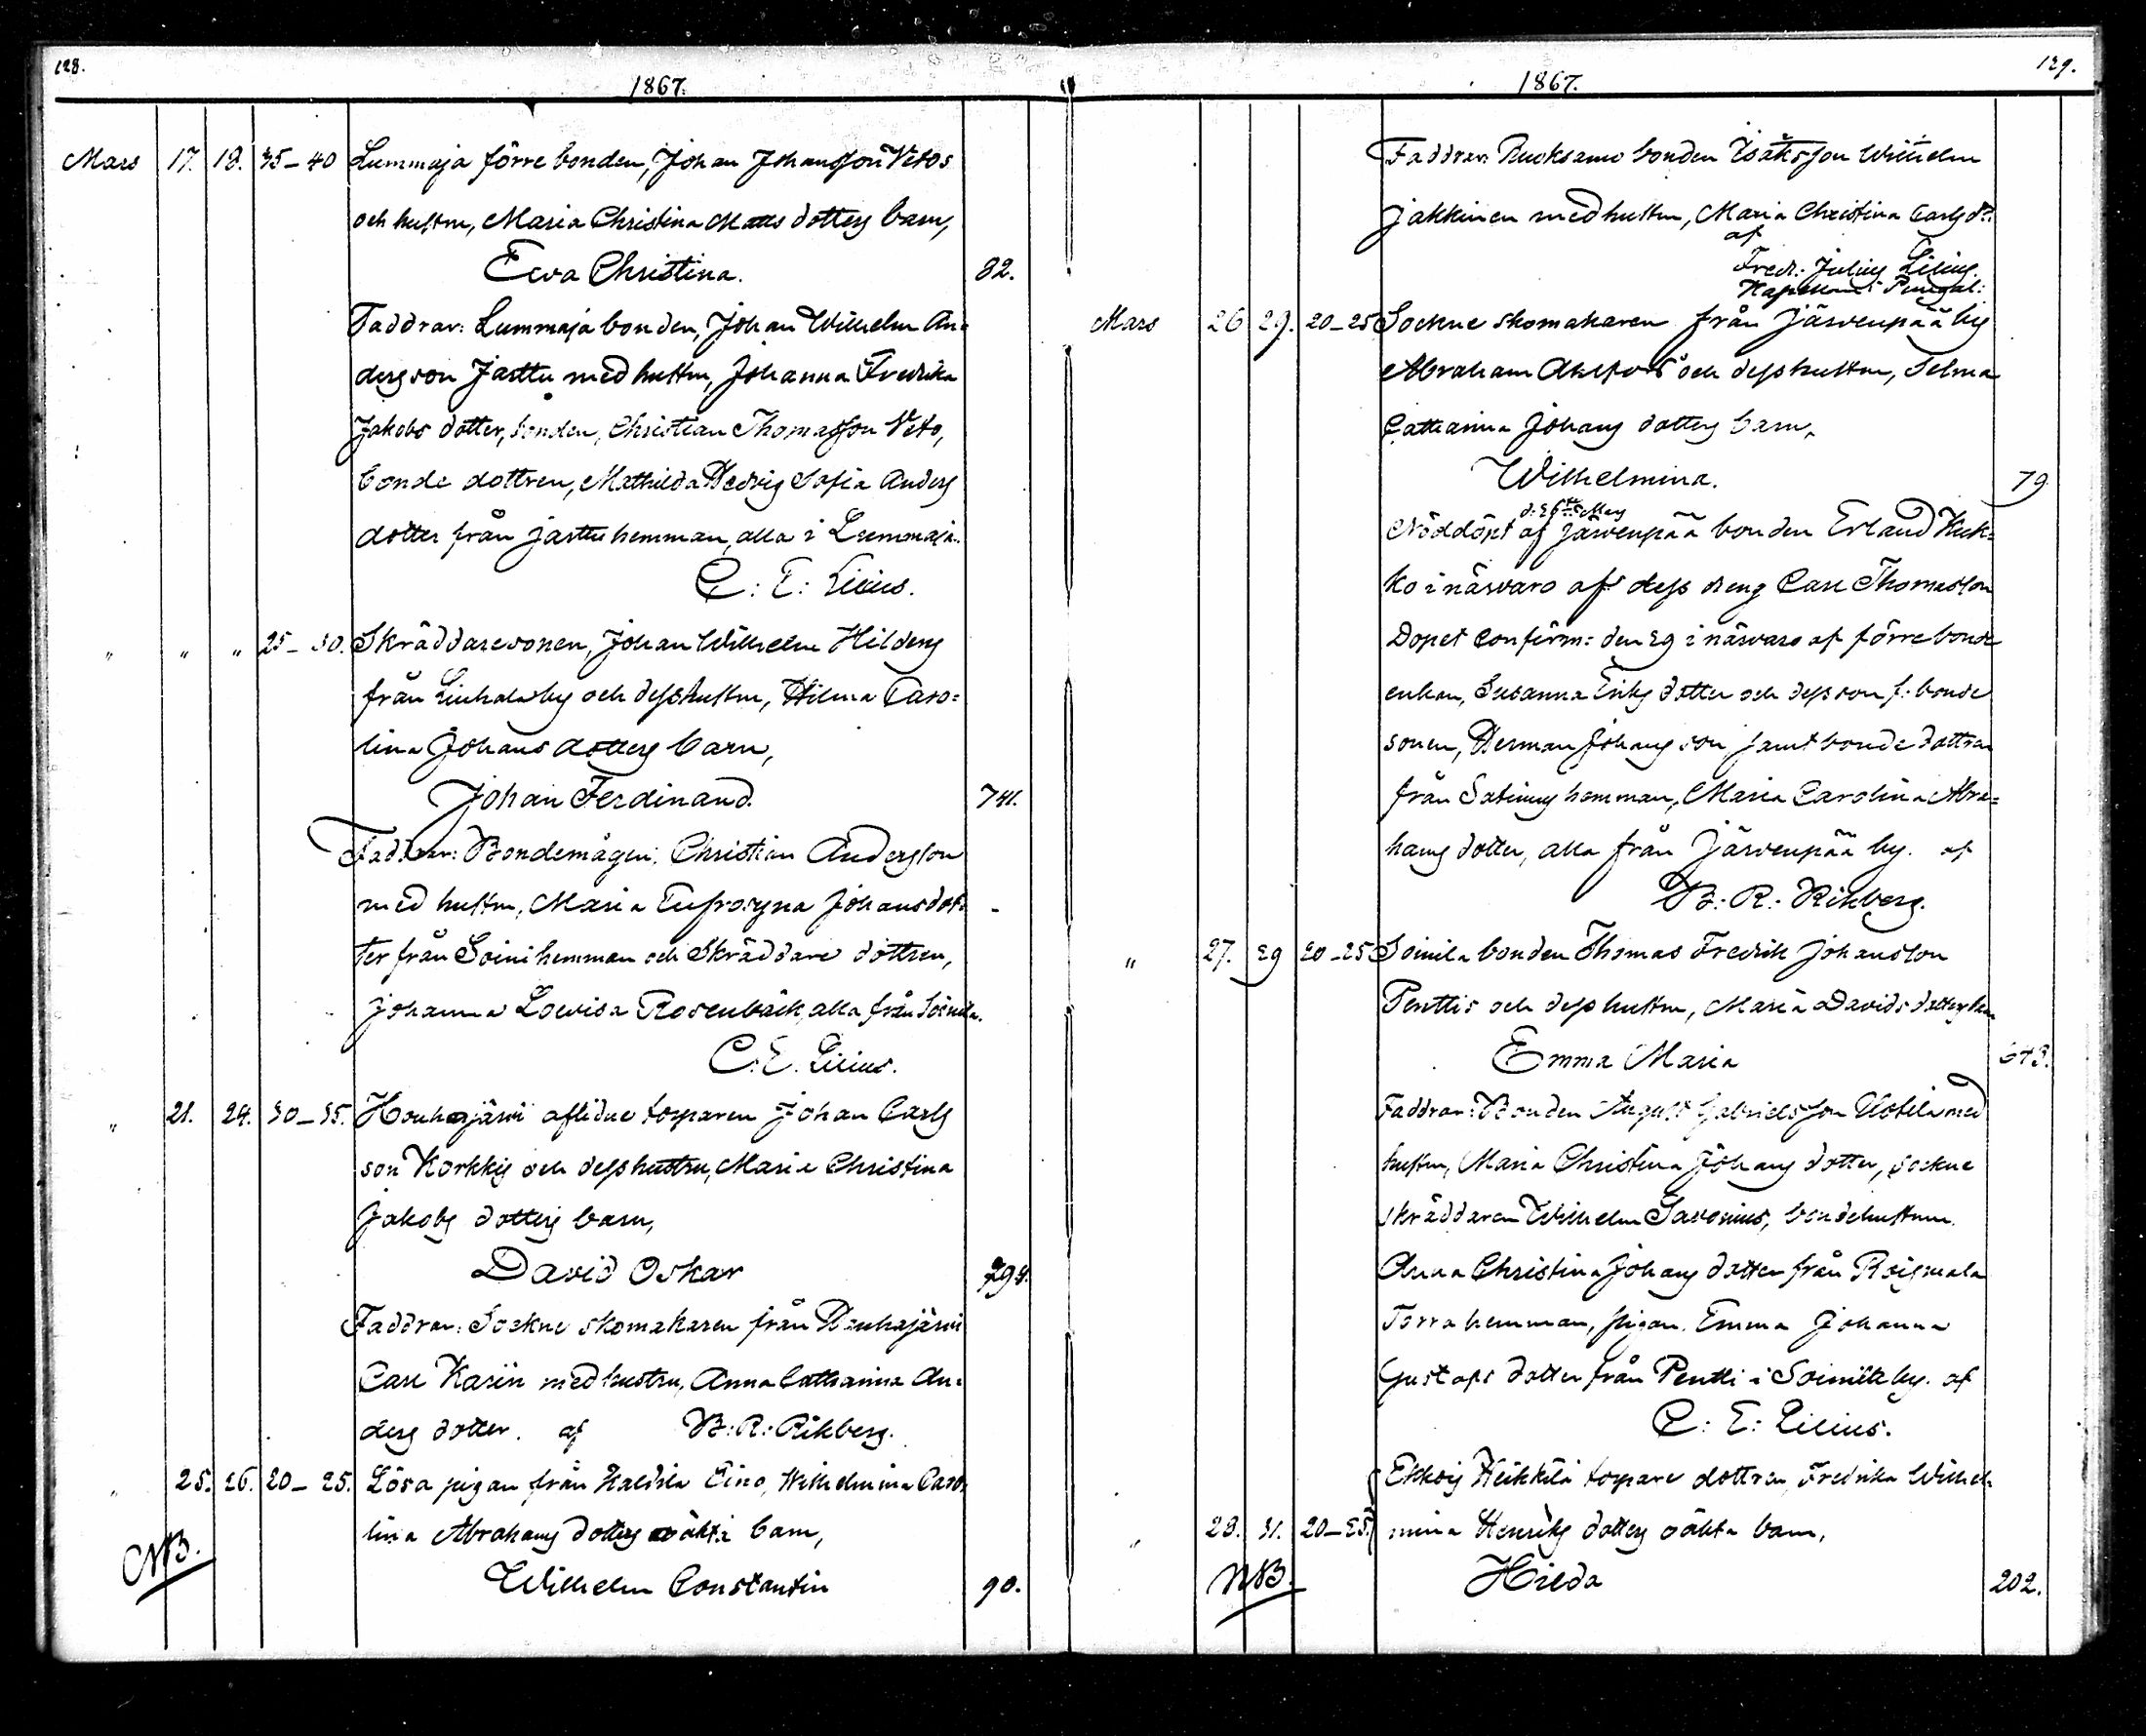 128.
1867.
Mars 17. 18. 35–40 Lummaja förre bonden, Johan Johansson Vetos
och hustru, Maria Christina Matts dotters barn,
Ewa Christina. 82.
Faddrar: Lummaja bonden, Johan Wilhelm An=
dersson Jarttu med hustru, Johanna Fredrika
Jakobs dotter, bonden, Christian Thomasson Veto,
bonde dottren, Mathilda Hedvig Sofia Anders
dotter från Jarttu hemman, alla i Lummaja.
C: E: Lilius.
" " " 25–30. Skräddaresonen, Johan Wilhelm Hildens
från Liuhala by och dess hustru, Hilma Caro=
lina Johans dotters barn,
Johan Ferdinand. 741.
Faddrar: Bondemågen, Christian Andersson
med hustru, Maria Eufrosyna Johansdot=
ter från Soini hemman och Skräddare dottren,
Johanna Lovisa Rosenbäck, alla från Soinila.
C. E. Lilius.
" 21. 24. 30–35. Houhajärvi aflidne torparen Johan Carls
son Korkkis och dess hustru, Maria Christina
Jakobs dotters barn,
David Oskar 294.
Faddrar: Sockne skomakaren från Houhajärvi
Carl Karin med hustru, Anna Catharina An=
ders dotter. af B: R: Rikberg.
" 25. 26. 20–25. Lösa pigan från Haldia Eino, Wilhelmina Caro=
lina Abrahams dotters oäkta barn,
NB.
Wilhelm Constantin 90.
129.
1867.
Faddrar: Ruoksamo bonden Isaksson Wilhelm
Jakkinen med hustru, Maria Christina Carls dr.
af
Fredr: Julius Lilius.
Kapellans Pungal:
Mars 26 29. 20–25 Sockne skomakaren från Järvenpää by
Abraham Ahlfors och dess hustru, Selma
Catharina Johans dotters barn,
Wilhelmina. 79
d: 26te Mars
Nöddöpt af Järvenpää bonden Erland Kuk=
ko i närvaro af dess dreng Carl Thomasson
Dopet Confirm: den 29 i närvaro af förre bonde
enkan, Susanna Eriks dotter och dess son f: bonde
sonen, Herman Johans son samt bonde dottren
från Satinus hemman, Maria Carolina Abra=
hams dotter, alla från Järvenpää by. af
B: R: Rikberg.
" 27. 29 20–25 Soinila bonden Thomas Fredrik Johansson
Penttis och dess hustru, Maria Davids dotters barn
Emma Maria 643.
Faddrar: Bonden August Gabrielsson Uotila med
hustru, Maria Christina Johans dotter, sockne
skräddaren Wilhelm Savonius, bondehustrun
Anna Christina Johans dotter från Roismala
Torra hemman, pigan Emma Johanna
Gustafs dotter från Pentti i Soinila by. af
C: E: Lilius.
Ekkois Heikkilä torpare dottren Fredrika Wilhel=
" 28. 31. 20–25. mina Henriks dotters oäkta barn,
NB.
Hilda 202.